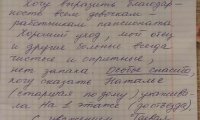 Хочу выразить благодар-
ность всем девочкам -
работникам пансионата.
Хороший уход, мой отец
и другие больные всегда
чистые и опрятные,
нет запаха. Особые спасибо,
хочу сказать Наталье
(старшая по дому), ухаживо
ла на 1 этаже (
С уважением